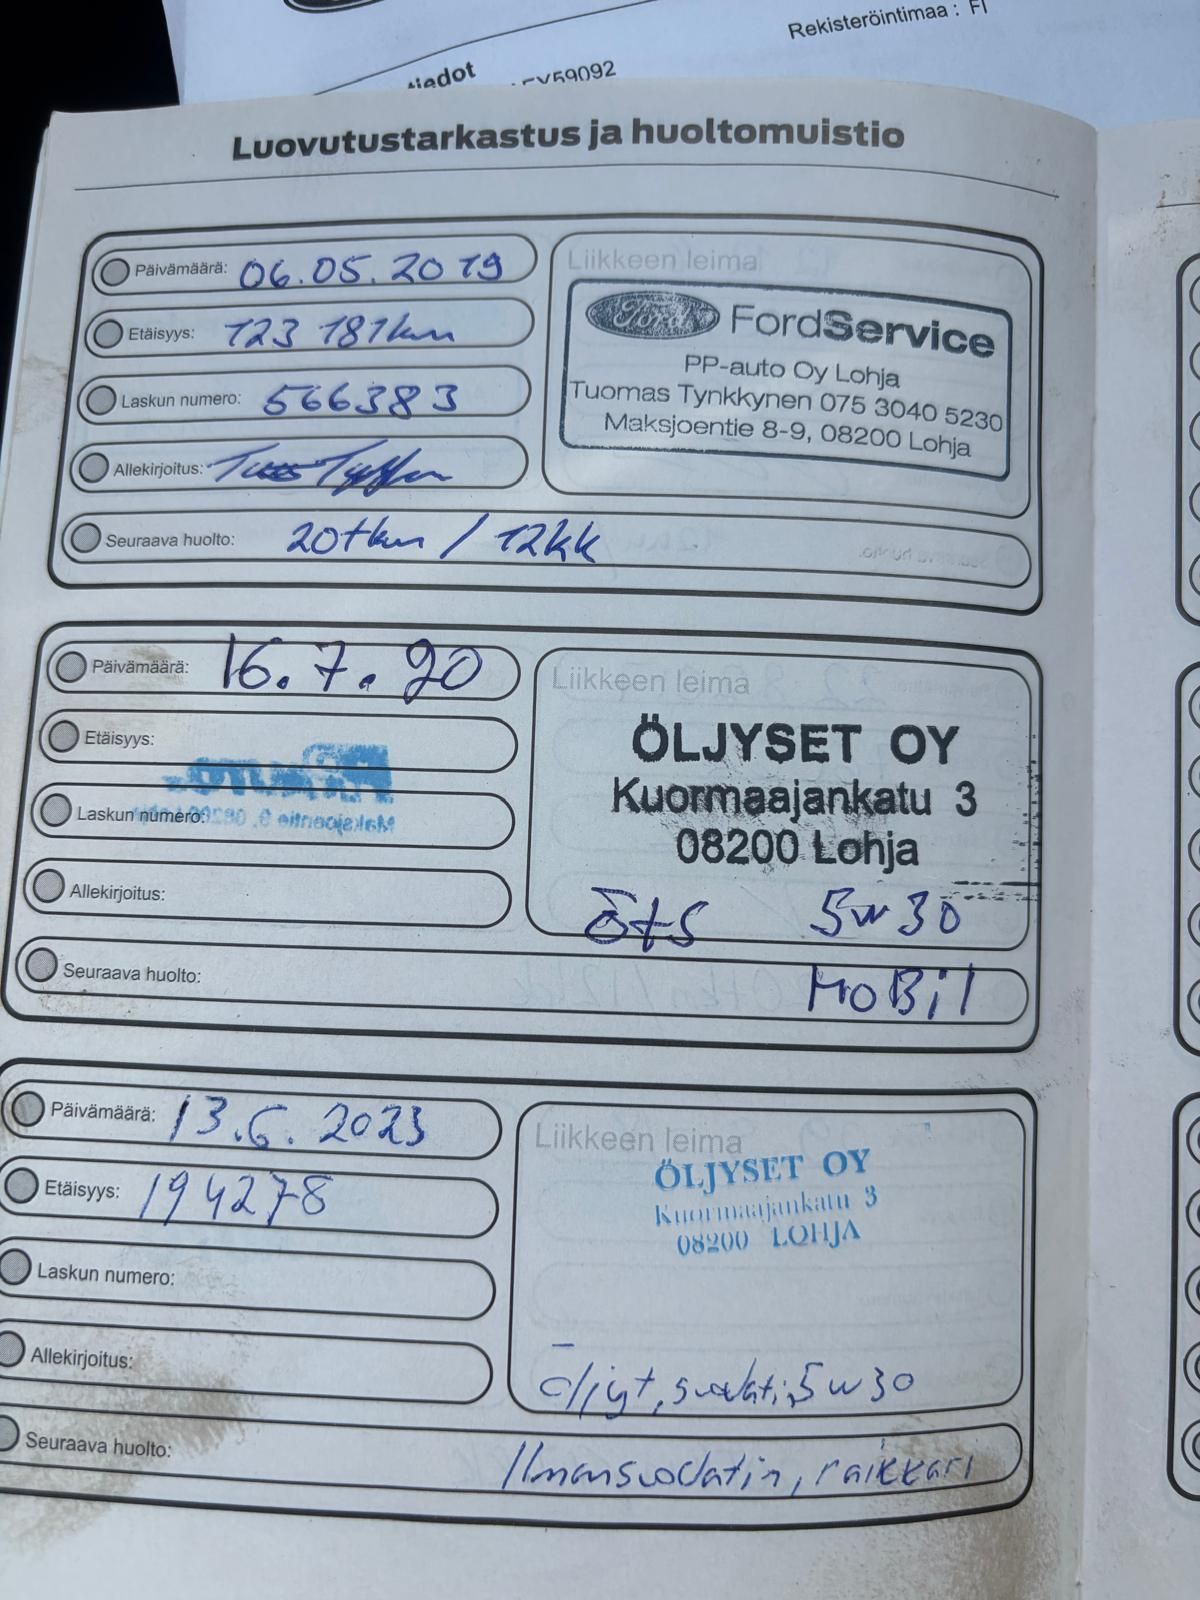 Rekisteröintimaa : FI
tiedot
59092
Luovutustarkastus ja huoltomuistio
Päivämäärä: 06.05.2019
Etäisyys: 123 181km
Laskun numero: 566383
Allekirjoitus:
Seuraava huolto: 20tkm / 12kk
Liikkeen leima
Ford FordService
PP-auto Oy Lohja
Tuomas Tynkkynen 075 3040 5230
Maksjoentie 8-9, 08200 Lohja
Päivämäärä: 16.7.20
Etäisyys:
Laskun numero:
Allekirjoitus:
Seuraava huolto:
Liikkeen leima
ÖLJYSET OY
Kuormaajankatu 3
08200 Lohja
öts 5w30
MOBil
Päivämäärä: 13.6.2023
Etäisyys: 194278
Laskun numero:
Allekirjoitus:
Seuraava huolto:
Liikkeen leima
ÖLJYSET OY
Kuormaajankatu 3
08200 LOHJA
öljyt, suodatin 5w30
Ilmansuodatin, raikkari